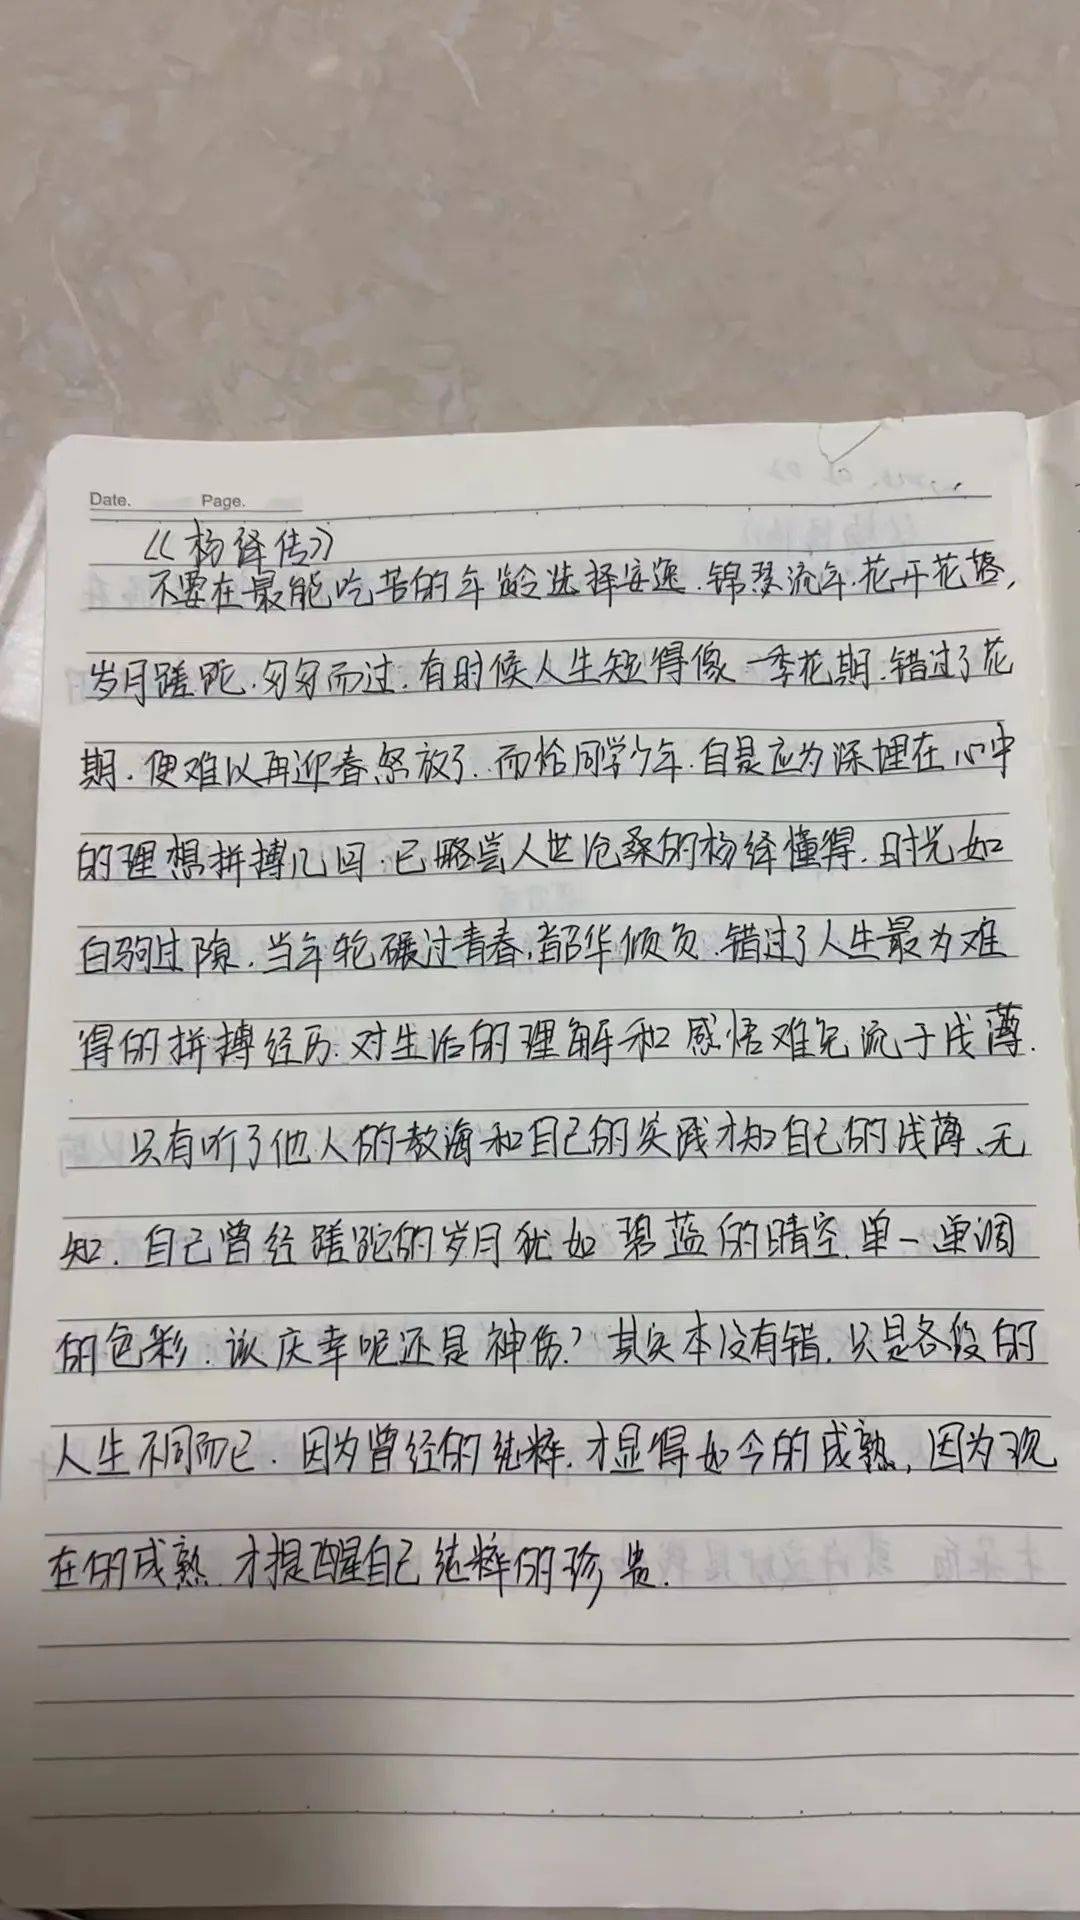 Date. Page.
《杨绛传》
不要在最能吃苦的年龄选择安逸.锦瑟流年.花开花落,
岁月蹉跎.匆匆而过.有时候人生短得像一季花期.错过了花
期.便难以再迎春怒放了.而恰同学少年.自是应为深埋在心中
的理想拼搏几回.已略尝人世沧桑的杨绛懂得.时光如
白驹过隙.当年轮碾过青春,韶华倾负.错过了人生最为难
得的拼搏经历.对生活的理解和感悟难免流于浅薄.
只有听了他人的教海和自己的实践才知自己的浅薄、无
知.自己曾经蹉跎的岁月犹如碧蓝的晴空.单一单调
的色彩.该庆幸呢还是神伤?其实本没有错.只是各段的
人生不同而已.因为曾经的纯粹.才显得如今的成熟,因为现
在的成熟.才提醒自己纯粹的珍贵.